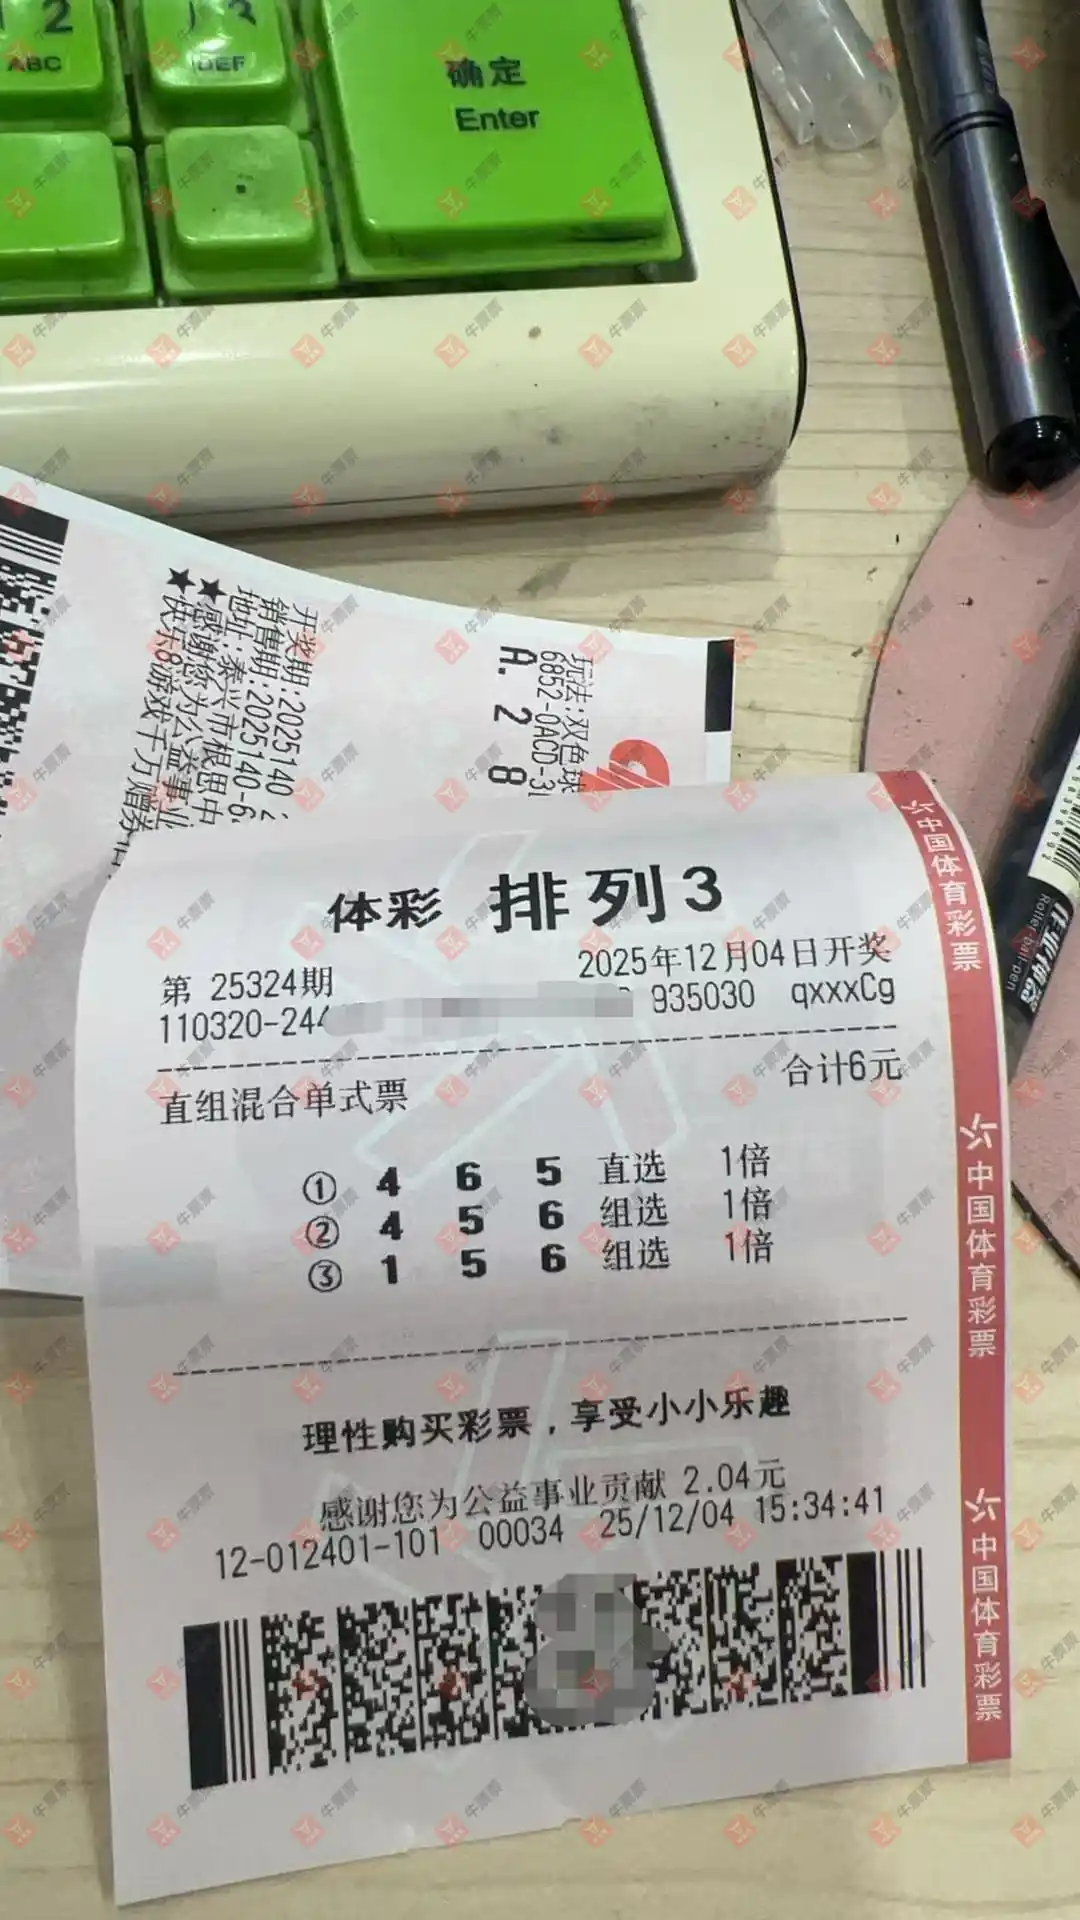 2
ABC
DEF
确定
Enter
开奖期:2025140
销售期:2025140-6
地址:泰兴市根思中
★感谢您为公益事业
★快乐8游戏千万赠券
玩法:双色球
6852-0ACD-3
A. 2 8
体彩 排列3
第 25324期 2025年12月04日开奖
110320-244 935030 qxxxCg
直组混合单式票 合计6元
① 4 6 5 直选 1倍
② 4 5 6 组选 1倍
③ 1 5 6 组选 1倍
理性购买彩票，享受小小乐趣
感谢您为公益事业贡献 2.04元
12-012401-101 00034 25/12/04 15:34:41
中国体育彩票
中国体育彩票
中国体育彩票
Roller-ball-pen
牛票票